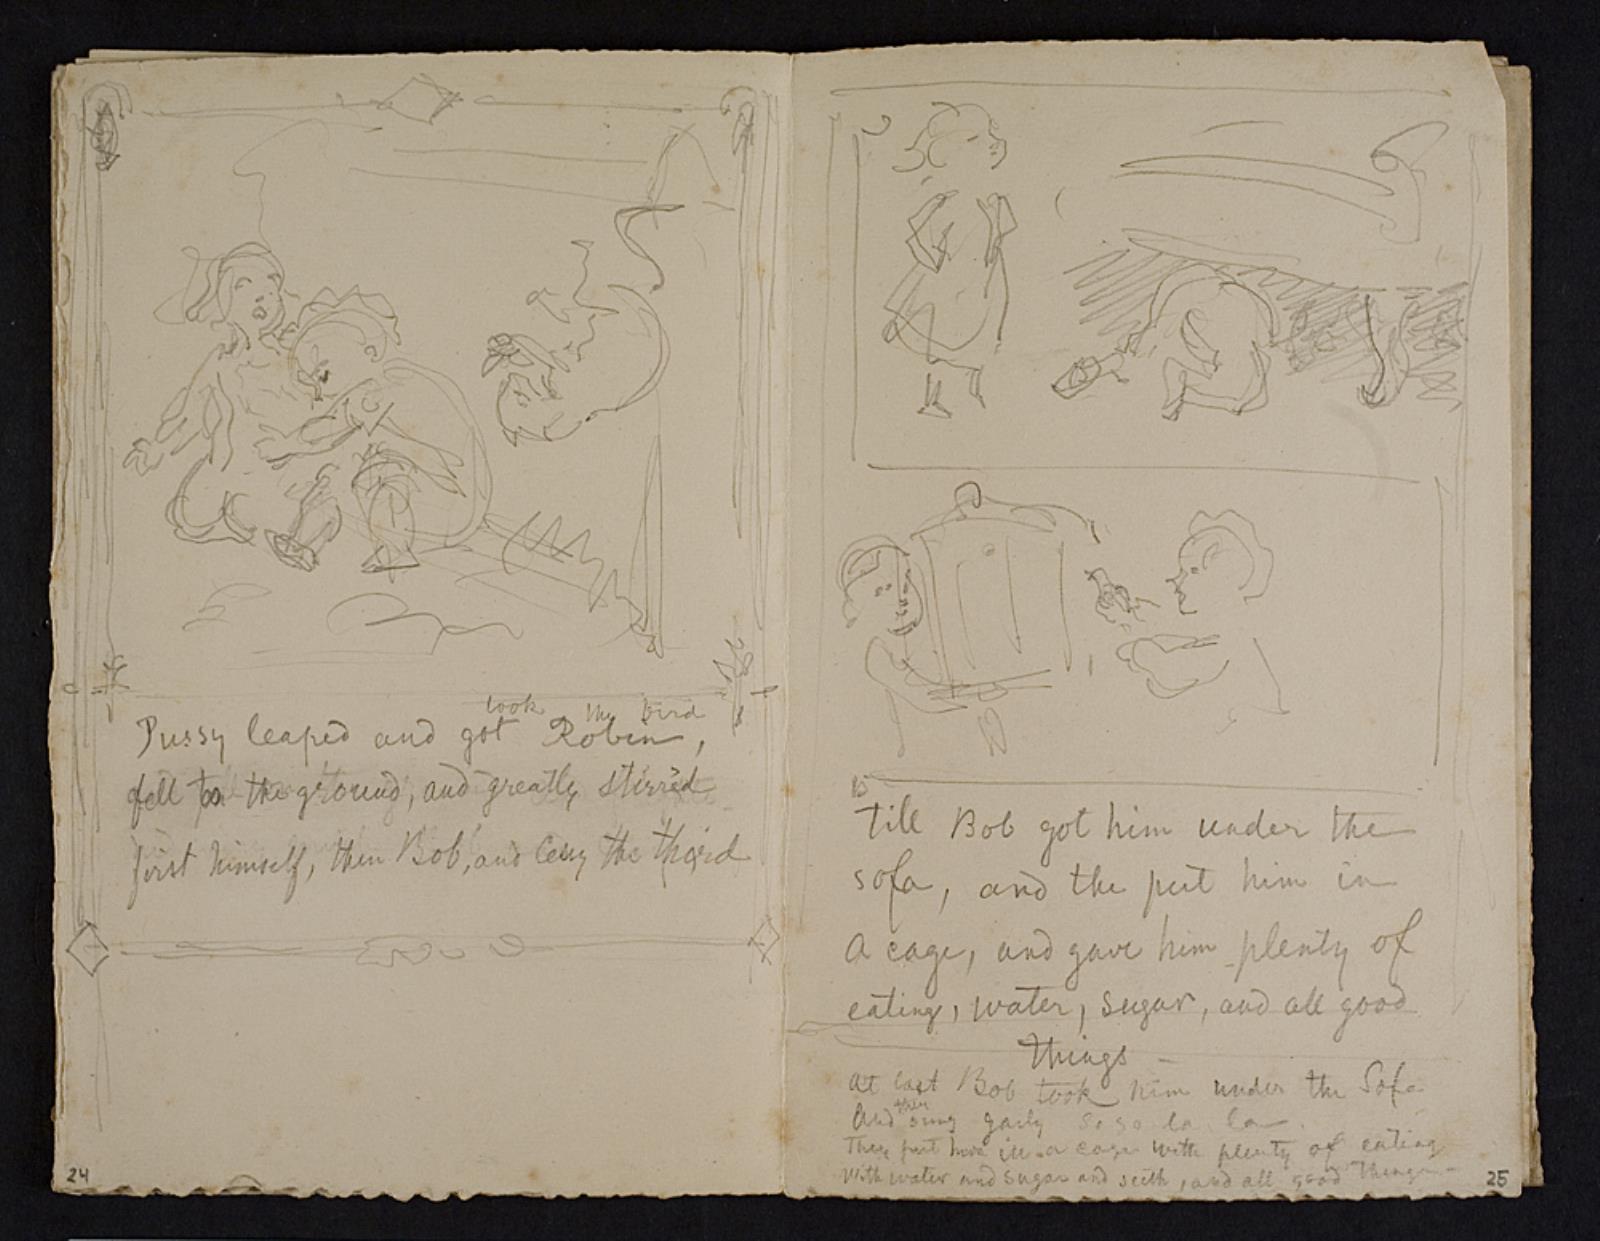 took the bird
Pussy leaped and got Robin,
fell to the ground, and greatly stirred
first himself, then Bob, and Cesy the third
24
till Bob got him under the
sofa, and the put him in
a cage, and gave him plenty of
eating, water, sugar, and all good
things -
At last Bob took him under the Sofa
they
And sung gaily So so la la
They put him in a cage with plenty of eating
With water and sugar and , and all good things -
25